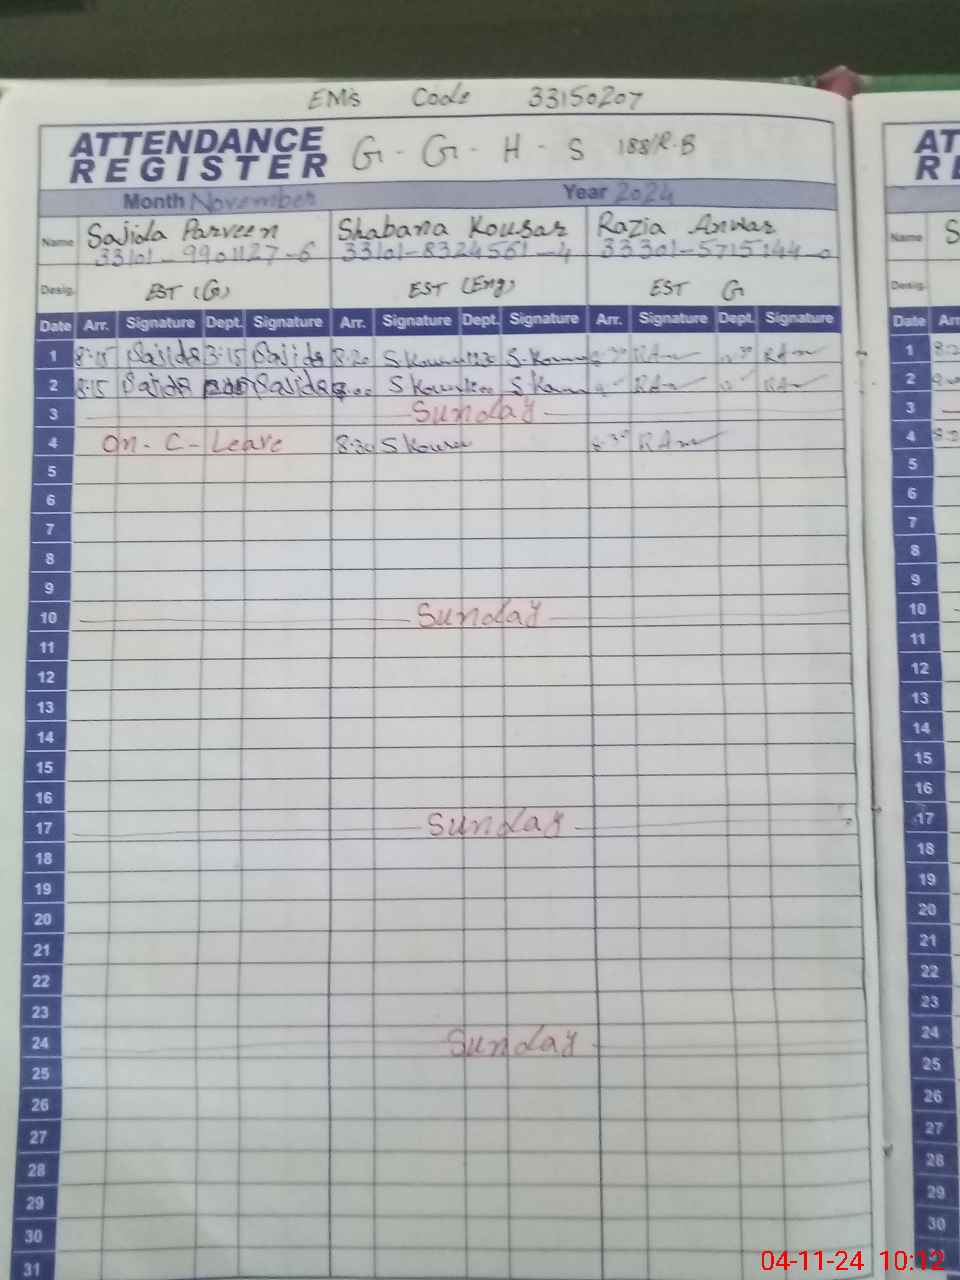 EMIS Code 33150207
ATTENDANCE REGISTER G - G - H - S 188/R-B
Month November Year 2024
Name Sajida Parveen Shabana Kousar Razia Anwar
33101-9901127-6 33101-8324561-4 33301-5715144-0
Desig. EST (G) EST (Eng) EST G
Date Arr. Signature Dept. Signature Arr. Signature Dept. Signature Arr. Signature Dept. Signature
1 8:15 Sajida 3:15 Sajida 8:20 S Kousar S. Kousar
2 8:15 Sajida Sajida S Kousar S Kousar
3 Sunday
4 On - C - Leave 8:30 S Kousar 8:30
5
6
7
8
9
10 Sunday
11
12
13
14
15
16
17 Sunday
18
19
20
21
22
23
24 Sunday
25
26
27
28
29
30
31
AT
RE
Name S
Desig.
Date Arr
1
2
3
4
5
6
7
8
9
10
11
12
13
14
15
16
17
18
19
20
21
22
23
24
25
26
27
28
29
30
04-11-24 10:12